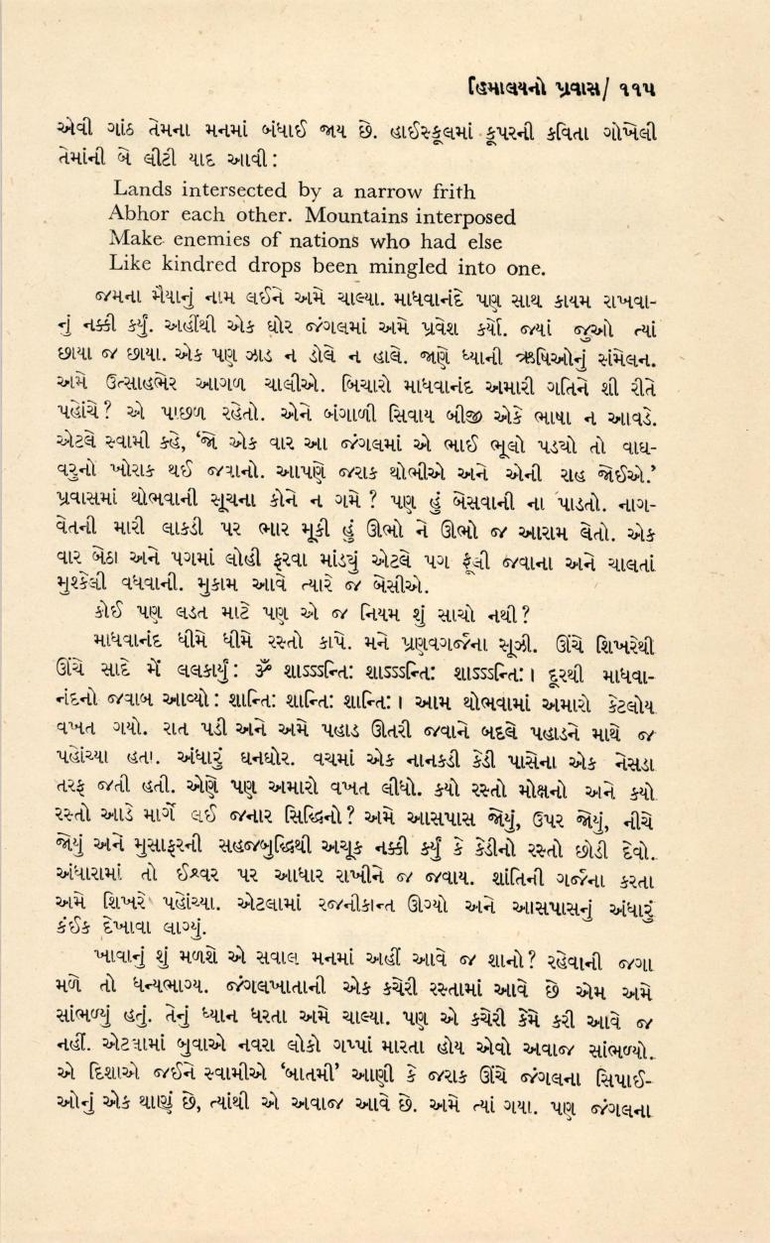 હિમાલયનો પ્રવાસ/ ૧૧૫
એવી ગાંઠ તેમના મનમાં બંધાઈ જાય છે. હાઈસ્કૂલમાં કૂપરની કવિતા ગોખેલી
તેમાંની બે લીટી યાદ આવી :
Lands intersected by a narrow frith
Abhor each other. Mountains interposed
Make enemies of nations who had else
Like kindred drops been mingled into one.
જમના મૈયાનું નામ લઈને અમે ચાલ્યા. માધવાનંદે પણ સાથ કાયમ રાખવા-
નું નક્કી કર્યું. અહીંથી એક ઘોર જંગલમાં અમે પ્રવેશ કર્યો. જ્યાં જુઓ ત્યાં
છાયા જ છાયા. એક પણ ઝાડ ન ડોલે ન હાલે. જાણે ધ્યાની ઋષિઓનું સંમેલન.
અમે ઉત્સાહભેર આગળ ચાલીએ. બિચારો માધવાનંદ અમારી ગતિને શી રીતે
પહોંચે? એ પાછળ રહેતો. એને બંગાળી સિવાય બીજી એકે ભાષા ન આવડે.
એટલે સ્વામી કહે, ‘જો એક વાર આ જંગલમાં એ ભાઈ ભૂલો પડ્યો તો વાઘ-
વરુનો ખોરાક થઈ જવાનો. આપણે જરાક થોભીએ અને એની રાહ જોઈએ.’
પ્રવાસમાં થોભવાની સૂચના કોને ન ગમે ? પણ હું બેસવાની ના પાડતો. નાગ-
વેતની મારી લાકડી પર ભાર મૂકી હું ઊભો ને ઊભો જ આરામ લેતો. એક
વાર બેઠા અને પગમાં લોહી ફરવા માંડ્યું એટલે પગ ફૂલી જવાના અને ચાલતાં
મુશ્કેલી વધવાની. મુકામ આવે ત્યારે જ બેસીએ.
કોઈ પણ લડત માટે પણ એ જ નિયમ શું સાચો નથી ?
માધવાનંદ ધીમે ધીમે રસ્તો કાપે. મને પ્રણવગર્જના સૂઝી. ઊંચે શિખરેથી
ઊંચે સાદે મેં લલકાર્યું : ૐ શાઽઽઽન્તિઃ શાઽઽઽન્તિઃ શાઽઽઽન્તિઃ। દૂરથી માધવા-
નંદનો જવાબ આવ્યો : શાન્તિઃ શાન્તિઃ શાન્તિઃ। આમ થોભવામાં અમારો કેટલોય
વખત ગયો. રાત પડી અને અમે પહાડ ઊતરી જવાને બદલે પહાડને માથે જ
પહોંચ્યા હતા. અંધારું ઘનઘોર. વચમાં એક નાનકડી કેડી પાસેના એક નેસડા
તરફ જતી હતી. એણે પણ અમારો વખત લીધો. કયો રસ્તો મોક્ષનો અને કયો
રસ્તો આડે માર્ગે લઈ જનાર સિદ્ધિનો ? અમે આસપાસ જોયું, ઉપર જોયું, નીચે
જોયું અને મુસાફરની સહજબુદ્ધિથી અચૂક નક્કી કર્યું કે કેડીનો રસ્તો છોડી દેવો.
અંધારામાં તો ઈશ્વર પર આધાર રાખીને જ જવાય. શાંતિની ગર્જના કરતા
અમે શિખરે પહોંચ્યા. એટલામાં રજનીકાન્ત ઊગ્યો અને આસપાસનું અંધારું
કંઈક દેખાવા લાગ્યું.
ખાવાનું શું મળશે એ સવાલ મનમાં અહીં આવે જ શાનો ? રહેવાની જગા
મળે તો ધન્યભાગ્ય. જંગલખાતાની એક કચેરી રસ્તામાં આવે છે એમ અમે
સાંભળ્યું હતું. તેનું ધ્યાન ધરતા અમે ચાલ્યા. પણ એ કચેરી કેમે કરી આવે જ
નહીં. એટલામાં બુવાએ નવરા લોકો ગપ્પાં મારતા હોય એવો અવાજ સાંભળ્યો.
એ દિશાએ જઈને સ્વામીએ ‘બાતમી’ આણી કે જરાક ઊંચે જંગલના સિપાઈ-
ઓનું એક થાણું છે, ત્યાંથી એ અવાજ આવે છે. અમે ત્યાં ગયા. પણ જંગલના